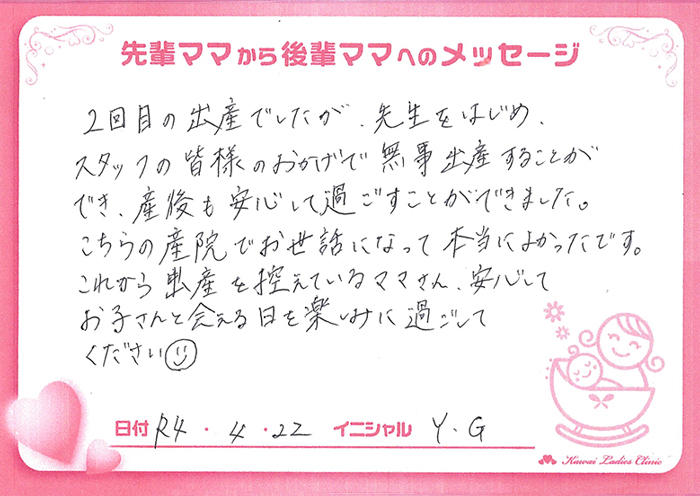 先輩ママから後輩ママへのメッセージ
2回目の出産でしたが、先生をはじめ、
スタッフの皆様のおかげで無事出産することが
でき、産後も安心して過ごすことができました。
こちらの産院でお世話になって本当によかったです。
これから出産を控えているママさん、安心して
お子さんと会える日を楽しみに過ごして
ください☺
日付 R4・4・22 イニシャル Y・G
Kawai Ladies Clinic